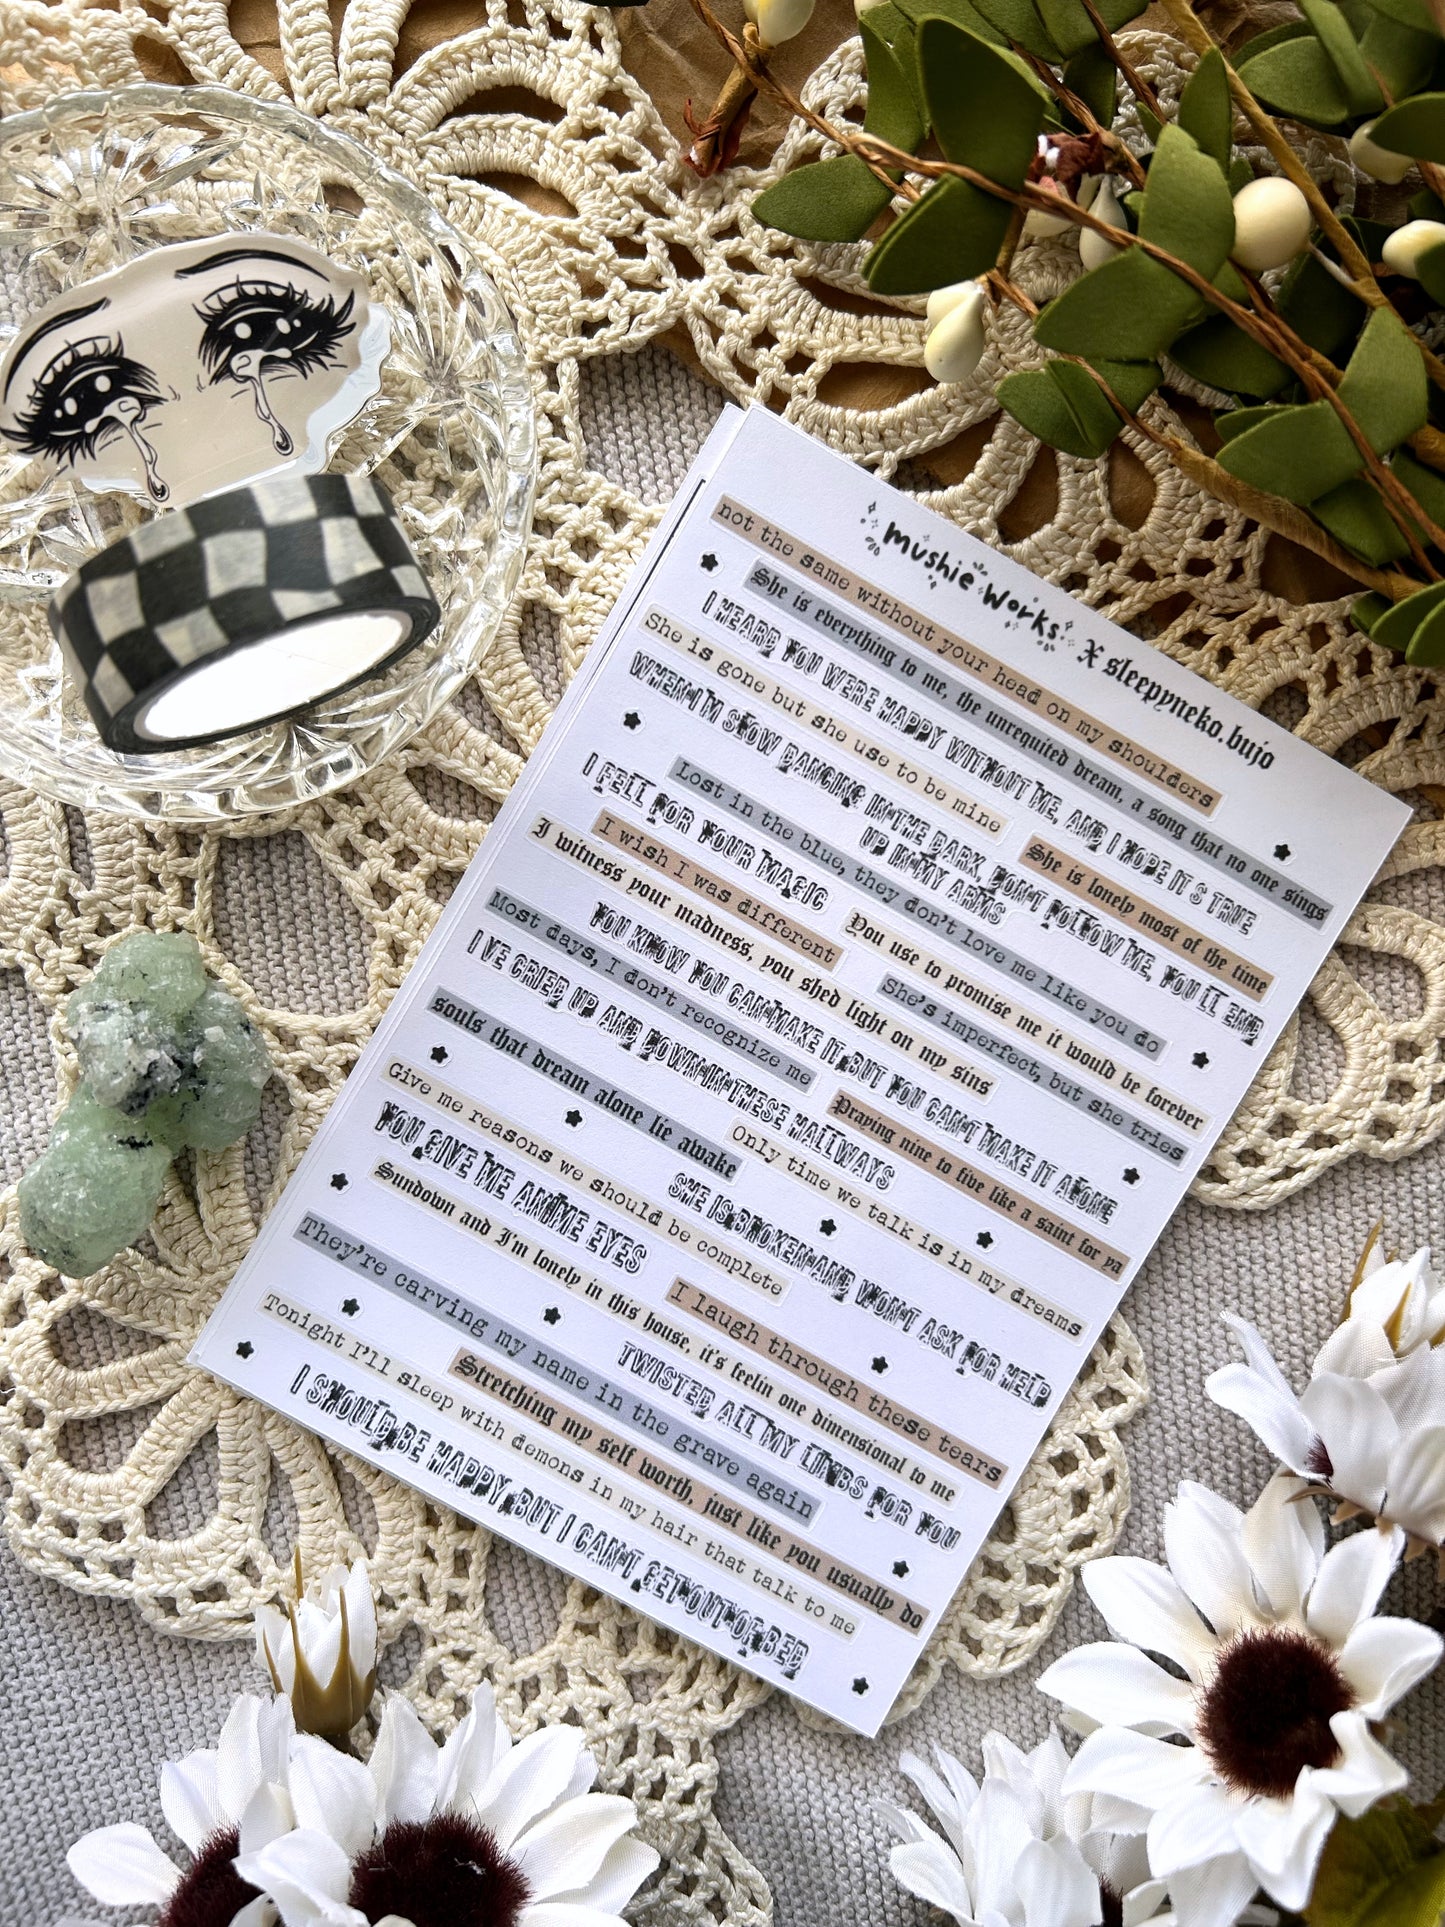 mushie works X sleepyneko.bujo
not the same without your head on my shoulders
She is everything to me, the unrequited dream, a song that no one sings
I HEARD YOU WERE HAPPY WITHOUT ME, AND I HOPE IT S TRUE
She is gone but she use to be mine
She is lonely most of the time
WHEN I'M SLOW DANCING IN THE DARK, DON'T FOLLOW ME, YOU'LL END
UP IN MY ARMS
Lost in the blue, they don't love me like you do
I FELL FOR YOUR MAGIC
You use to promise me it would be forever
I wish I was different
She's imperfect, but she tries
I witness your madness, you shed light on my sins
YOU KNOW YOU CAN MAKE IT BUT YOU CAN'T MAKE IT ALONE
Most days, I don't recognize me
Praying nine to five like a saint for ya
I VE CRIED UP AND DOWN IN THESE HALLWAYS
Only time we talk is in my dreams
souls that dream alone lie awake
SHE IS BROKEN AND WON'T ASK FOR HELP
Give me reasons we should be complete
I laugh through these tears
YOU GIVE ME ANIME EYES
Sundown and I'm lonely in this house, it's feelin one dimensional to me
TWISTED ALL MY LIMBS FOR YOU
They're carving my name in the grave again
Stretching my self worth, just like you usually do
Tonight I'll sleep with demons in my hair that talk to me
I SHOULD BE HAPPY, BUT I CAN'T GET OUT OF BED